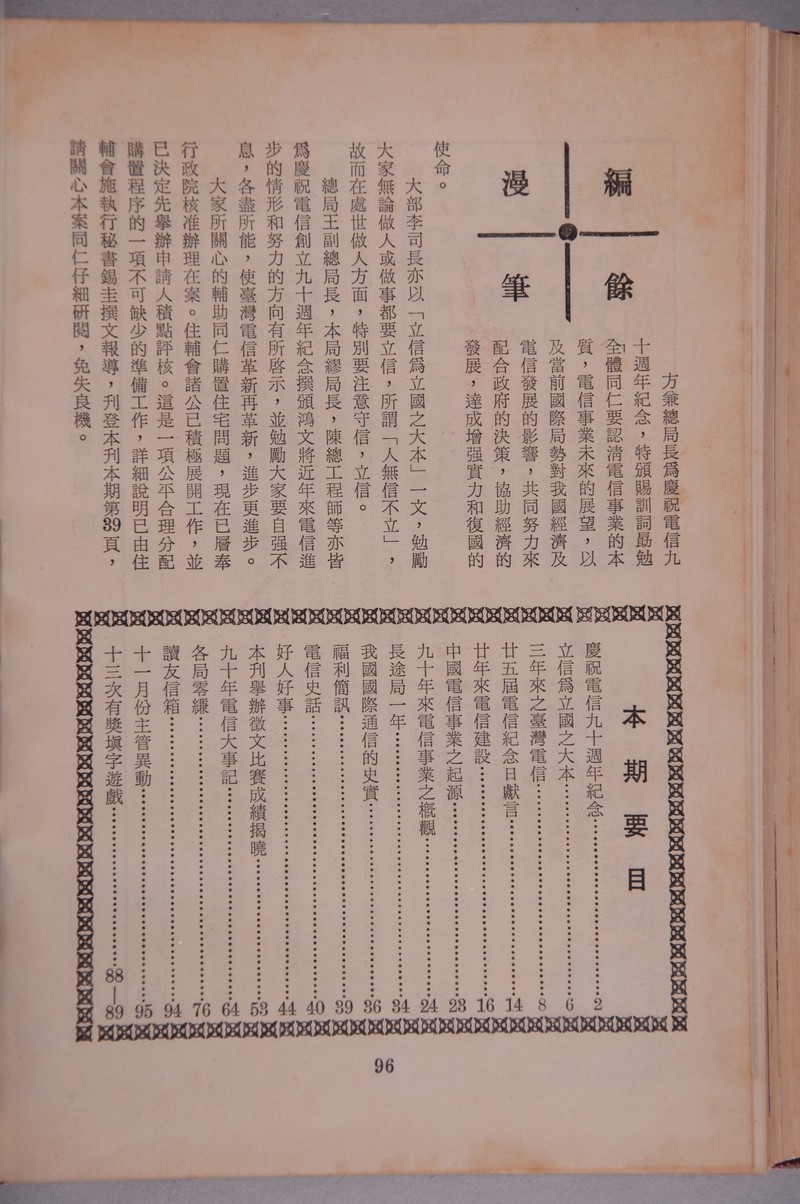 編餘
漫筆
方兼總局長爲慶祝電信九
十週年紀念，特頒賜訓詞勗勉
全體同仁要認清電信事業的本
質，電信事業未來的展望，以
及當前國際局勢對我國經濟及
電信發展的影響，共同努力來
配合政府的決策，協助經濟的
發展，達成增强實力和復國的
使命。
大部李司長亦以「立信爲立國之大本」一文，勉勵
大家無論做人或做事都要立信，所謂「人無信不立」，
故而在處世做人方面，特別要注意守信，立信。
總局王副總局長，本局繆局長，陳總工程師等亦皆
爲慶祝電信創立九十週年紀念撰頒鴻文將近年來電信進
步的情形和努力的方向有所啓示，並勉勵大家要自强不
息，各盡所能，使臺灣電信革新再革新，進步更進步。
大家所關心的輔助同仁購置住宅問題，現在已層奉
行政院核准辦理在案。住輔會諸公已積極展開工作，並
已決定先舉辦申請人積點評核。這是一項公平合理分配
購置程序的一項不可缺少的準備工作，詳細說明已由住
輔會施執行秘書錫圭撰文報導，刋登本刋本期第39頁，
請關心本案同仁仔細研閱，免失良機。
本期要目
慶祝電信九十週年紀念……2
立信爲立國之大本……6
三年來之臺灣電信……8
廿五屆電信紀念日獻言……14
廿年來電信建設……16
中國電信事業之起源……23
九十年來電信事業之槪觀……24
長途局一年……34
我國國際通信的史實……36
福利簡訊……39
電信史話……40
好人好事……44
本刋舉辦徵文比賽成績揭曉……53
九十年電信大事記……64
各局零縑……76
讀友信箱……94
十一月份主管異動……95
十三次有獎塡字遊戲……88—89
96